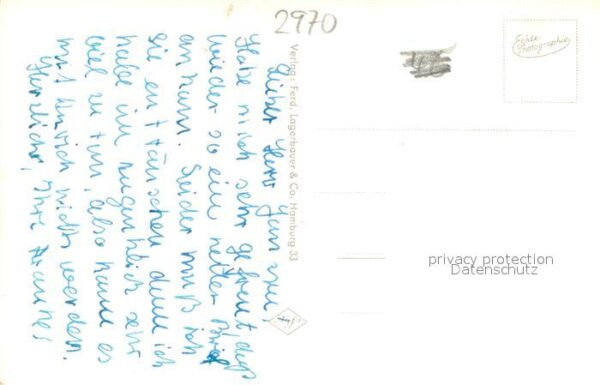 2970
Echte
Photographie
Lieber Herr
Habe mich sehr gefreut daß
wieder so ein netter Brief
ankam. Leider muß ich
Sie enttäuschen denn ich
habe im Augenblick sehr
viel zu tun, also kann es
mit nicht werden.
Herzlichst, Ihre
Verlag: Ferd. Lagerbauer & Co. Hamburg 33
privacy protection
Datenschutz